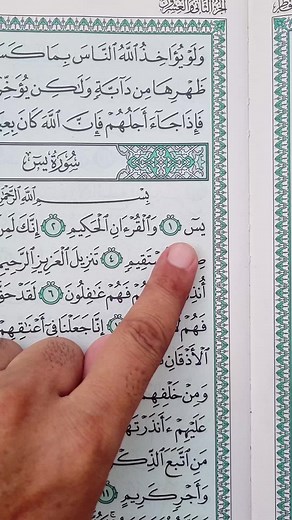 الجزء الثاني والعشرون
وَلَوْ يُؤَاخِذُ ٱللَّهُ ٱلنَّاسَ بِمَا
ظَهْرِهَا مِن دَآبَّةٍ وَلَٰكِن
فَإِذَا جَآءَ أَجَلُهُمْ فَإِنَّ ٱللَّهَ كَانَ
سُورَةُ يسٓ
بِسْمِ ٱللَّهِ
يسٓ ١ وَٱلْقُرْءَانِ ٱلْحَكِيمِ ٢ إِنَّكَ لَمِنَ
٤ تَنزِيلَ ٱلْعَزِيزِ ٱلرَّحِيمِ
فَهُمْ غَٰفِلُونَ ٦ لَقَدْ حَقَّ
فَهُمْ إِنَّا جَعَلْنَا فِىٓ أَعْنَٰقِهِمْ
ٱلْأَذْقَانِ
وَمِنْ خَلْفِهِمْ
عَلَيْهِمْ ءَأَنذَرْتَهُمْ
مَنِ ٱتَّبَعَ ٱلذِّكْرَ
وَأَجْرٍ كَرِيمٍ ١١